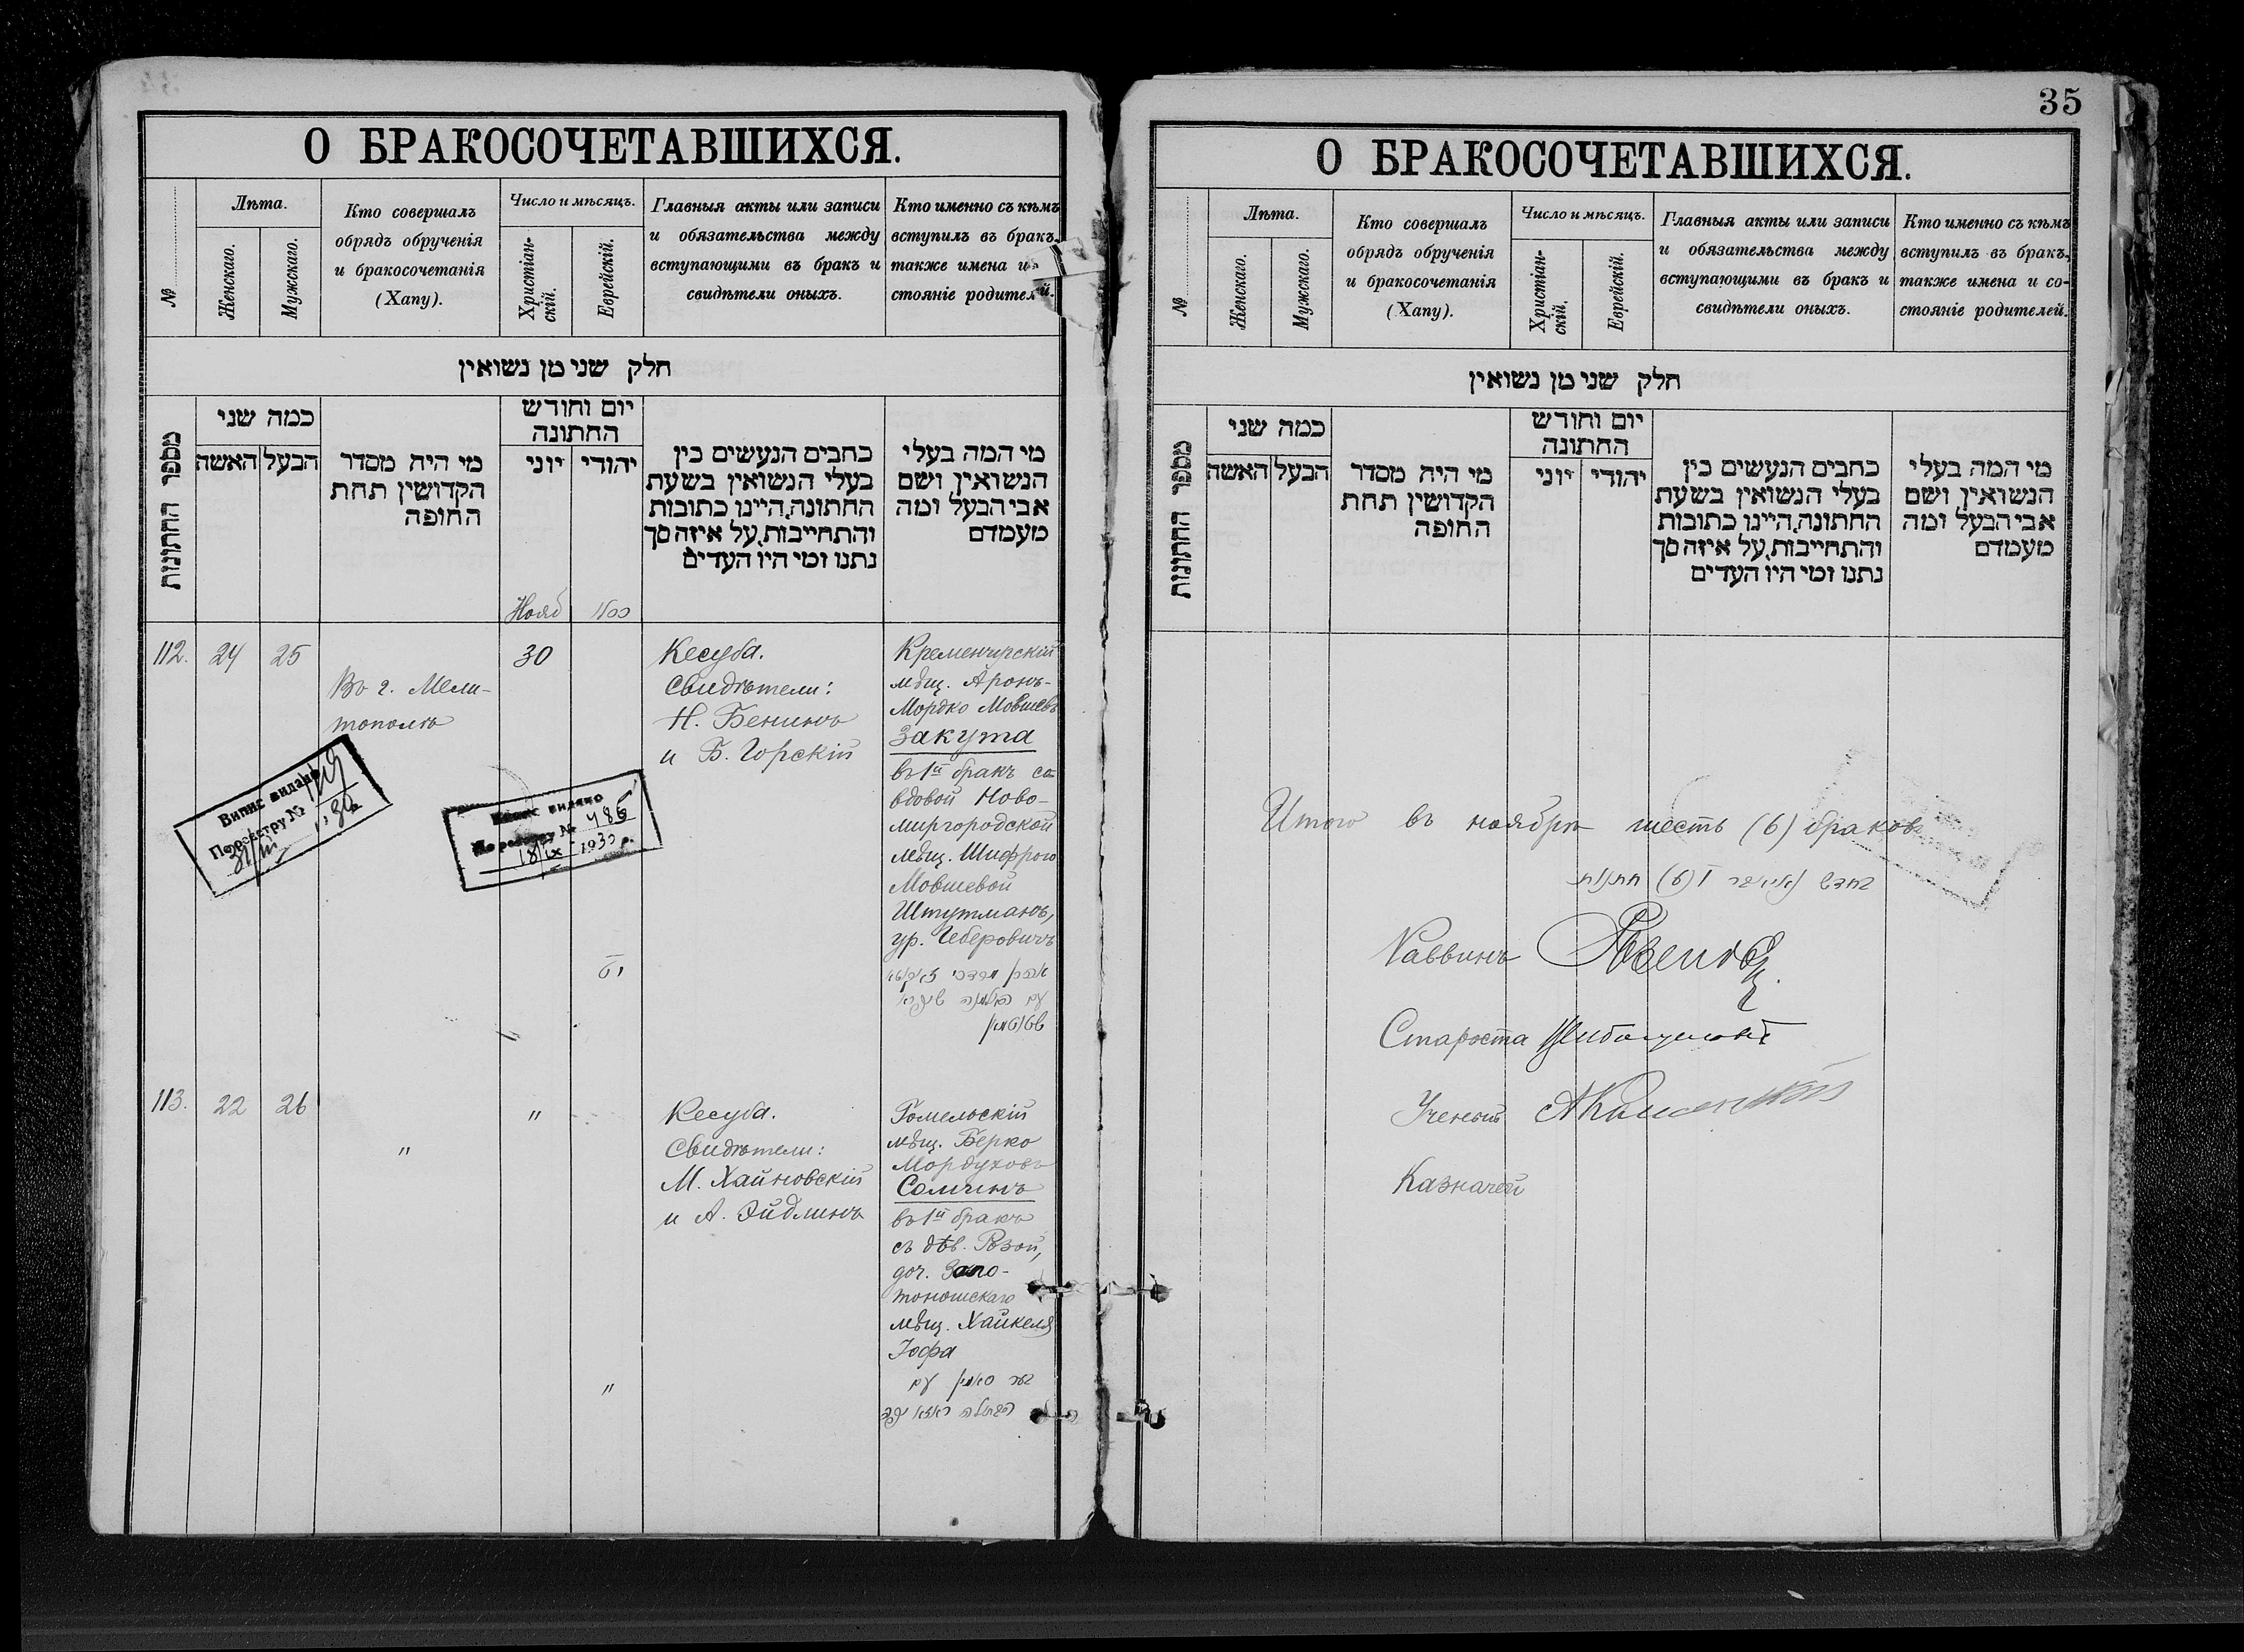 О БРАКОСОЧЕТАВШИХСЯ.
№
Лѣта.
Женскаго.
Мужскаго.
Кто совершалъ
обрядъ обрученія
и бракосочетанія
(Хапу).
Число и мѣсяцъ.
Христіан-
скій.
Еврейскій.
Главныя акты или записи
и обязательства между
вступающими въ бракъ и
свидѣтели оныхъ.
Кто именно съ кѣмъ
вступилъ въ бракъ,
также имена и
стояніе родителей.
חלק שני מן נשואין
מספר החתונות
כמה שני
האשה
הבעל
מי היה מסדר
הקדושין תחת
החופה
יום וחודש
החתונה
יוני
יהודי
כתבים הנעשים בין
בעלי הנשואין בשעת
החתונה, היינו כתובות
והתחייבות, על איזה סך
נתנו ומי היו העדים
מי המה בעלי
הנשואין ושם
אבי הבעל ומה
מעמדם
Нояб
כסלו
112.
24
25
Въ г. Мели-
тополѣ
30
יט
Кесуба.
Свидѣтели:
Н. Бенинъ
и Б. Горскій
Кременчугскій
мѣщ. Аронъ-
Мордко Мовшевъ
Закута
въ 1й бракъ со
вдовой Ново-
миргородской
мѣщ. Шифрою
Мовшевой
Штутманъ,
ур. Геберовичъ
אהרן מרדכי זאקוטא
עם האלמנה שיפרא
שטוטמאן
Випис видано
По реєстру №
Випис видано
По реєстру № 486
18/IX 1930 р.
113.
22
26
"
"
"
Кесуба.
Свидѣтели:
М. Хайновскій
и А. Эйдлинъ
Гомельскій
мѣщ. Берко
Мордуховъ
Сомчинъ
въ 1й бракъ
съ дѣв. Розой,
доч. Золо-
тоношскаго
мѣщ. Хайкеля
Іофа
עם
הבתולה ראזא יפה
35
О БРАКОСОЧЕТАВШИХСЯ.
№
Лѣта.
Женскаго.
Мужскаго.
Кто совершалъ
обрядъ обрученія
и бракосочетанія
(Хапу).
Число и мѣсяцъ.
Христіан-
скій.
Еврейскій.
Главныя акты или записи
и обязательства между
вступающими въ бракъ и
свидѣтели оныхъ.
Кто именно съ кѣмъ
вступилъ въ бракъ,
также имена и со-
стояніе родителей.
חלק שני מן נשואין
מספר החתונות
כמה שני
האשה
הבעל
מי היה מסדר
הקדושין תחת
החופה
יום וחודש
החתונה
יוני
יהודי
כתבים הנעשים בין
בעלי הנשואין בשעת
החתונה, היינו כתובות
והתחייבות, על איזה סך
נתנו ומי היו העדים
מי המה בעלי
הנשואין ושם
אבי הבעל ומה
מעמדם
Итого въ ноябрѣ шесть (6) браковъ
בחדש נאיאבר ו (6) חתונות
Раввинъ
Староста
Ученый
Казначей